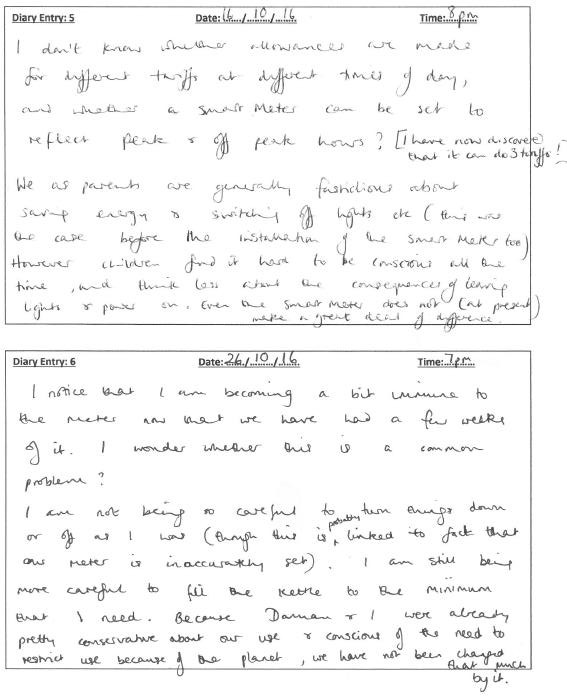 Diary Entry: 5 Date: 16 / 10 / 16 Time: 8pm
I don't know whether allowances are made
for different tariffs at different times of day,
and whether a smart meter can be set to
reflect peak & off peak hours? [I have now discovered
that it can do 3 tariffs!]
We as parents are generally fastidious about
saving energy & switching off lights etc (this was
the case before the installation of the smart meter too)
However children find it hard to be conscious all the
time, and think less about the consequences of leaving
lights & power on. Even the smart meter does not (at present)
make a great deal of difference.
Diary Entry: 6 Date: 26 / 10 / 16 Time: 7pm
I notice that I am becoming a bit immune to
the meter now that we have had a few weeks
of it. I wonder whether this is a common
problem?
I am not being so careful to turn things down
or off as I was (though this is probably linked to fact that
our meter is inaccurately set). I am still being
more careful to fill the kettle to the minimum
that I need. Because Damian & I were already
pretty conservative about our use & conscious of the need to
restrict use because of the planet, we have not been changed
that much
by it.